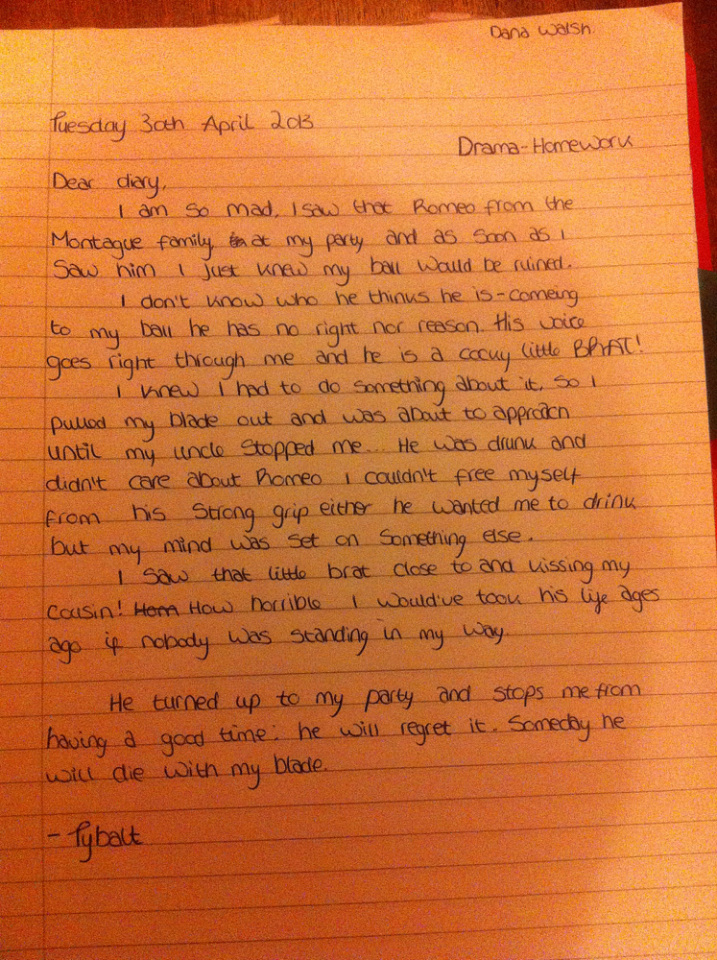 Dana Walsh
Tuesday 30th April 2013
Drama-Homework
Dear diary,
I am so mad. I saw that Romeo from the
Montague family at my party and as soon as I
saw him I just knew my ball would be ruined.
I don't know who he thinks he is-comeing
to my ball he has no right nor reason. His voice
goes right through me and he is a cocky little BRAT!
I knew I had to do something about it, so I
pulled my blade out and was about to approach
until my uncle stopped me... He was drunk and
didn't care about Romeo I couldn't free myself
from his strong grip either he wanted me to drink
but my mind was set on something else.
I saw that little brat close to and kissing my
cousin! Hom How horrible I would've took his life ages
ago if nobody was standing in my way.
He turned up to my party and stops me from
having a good time: he will regret it. Someday he
will die with my blade.
- Tybalt